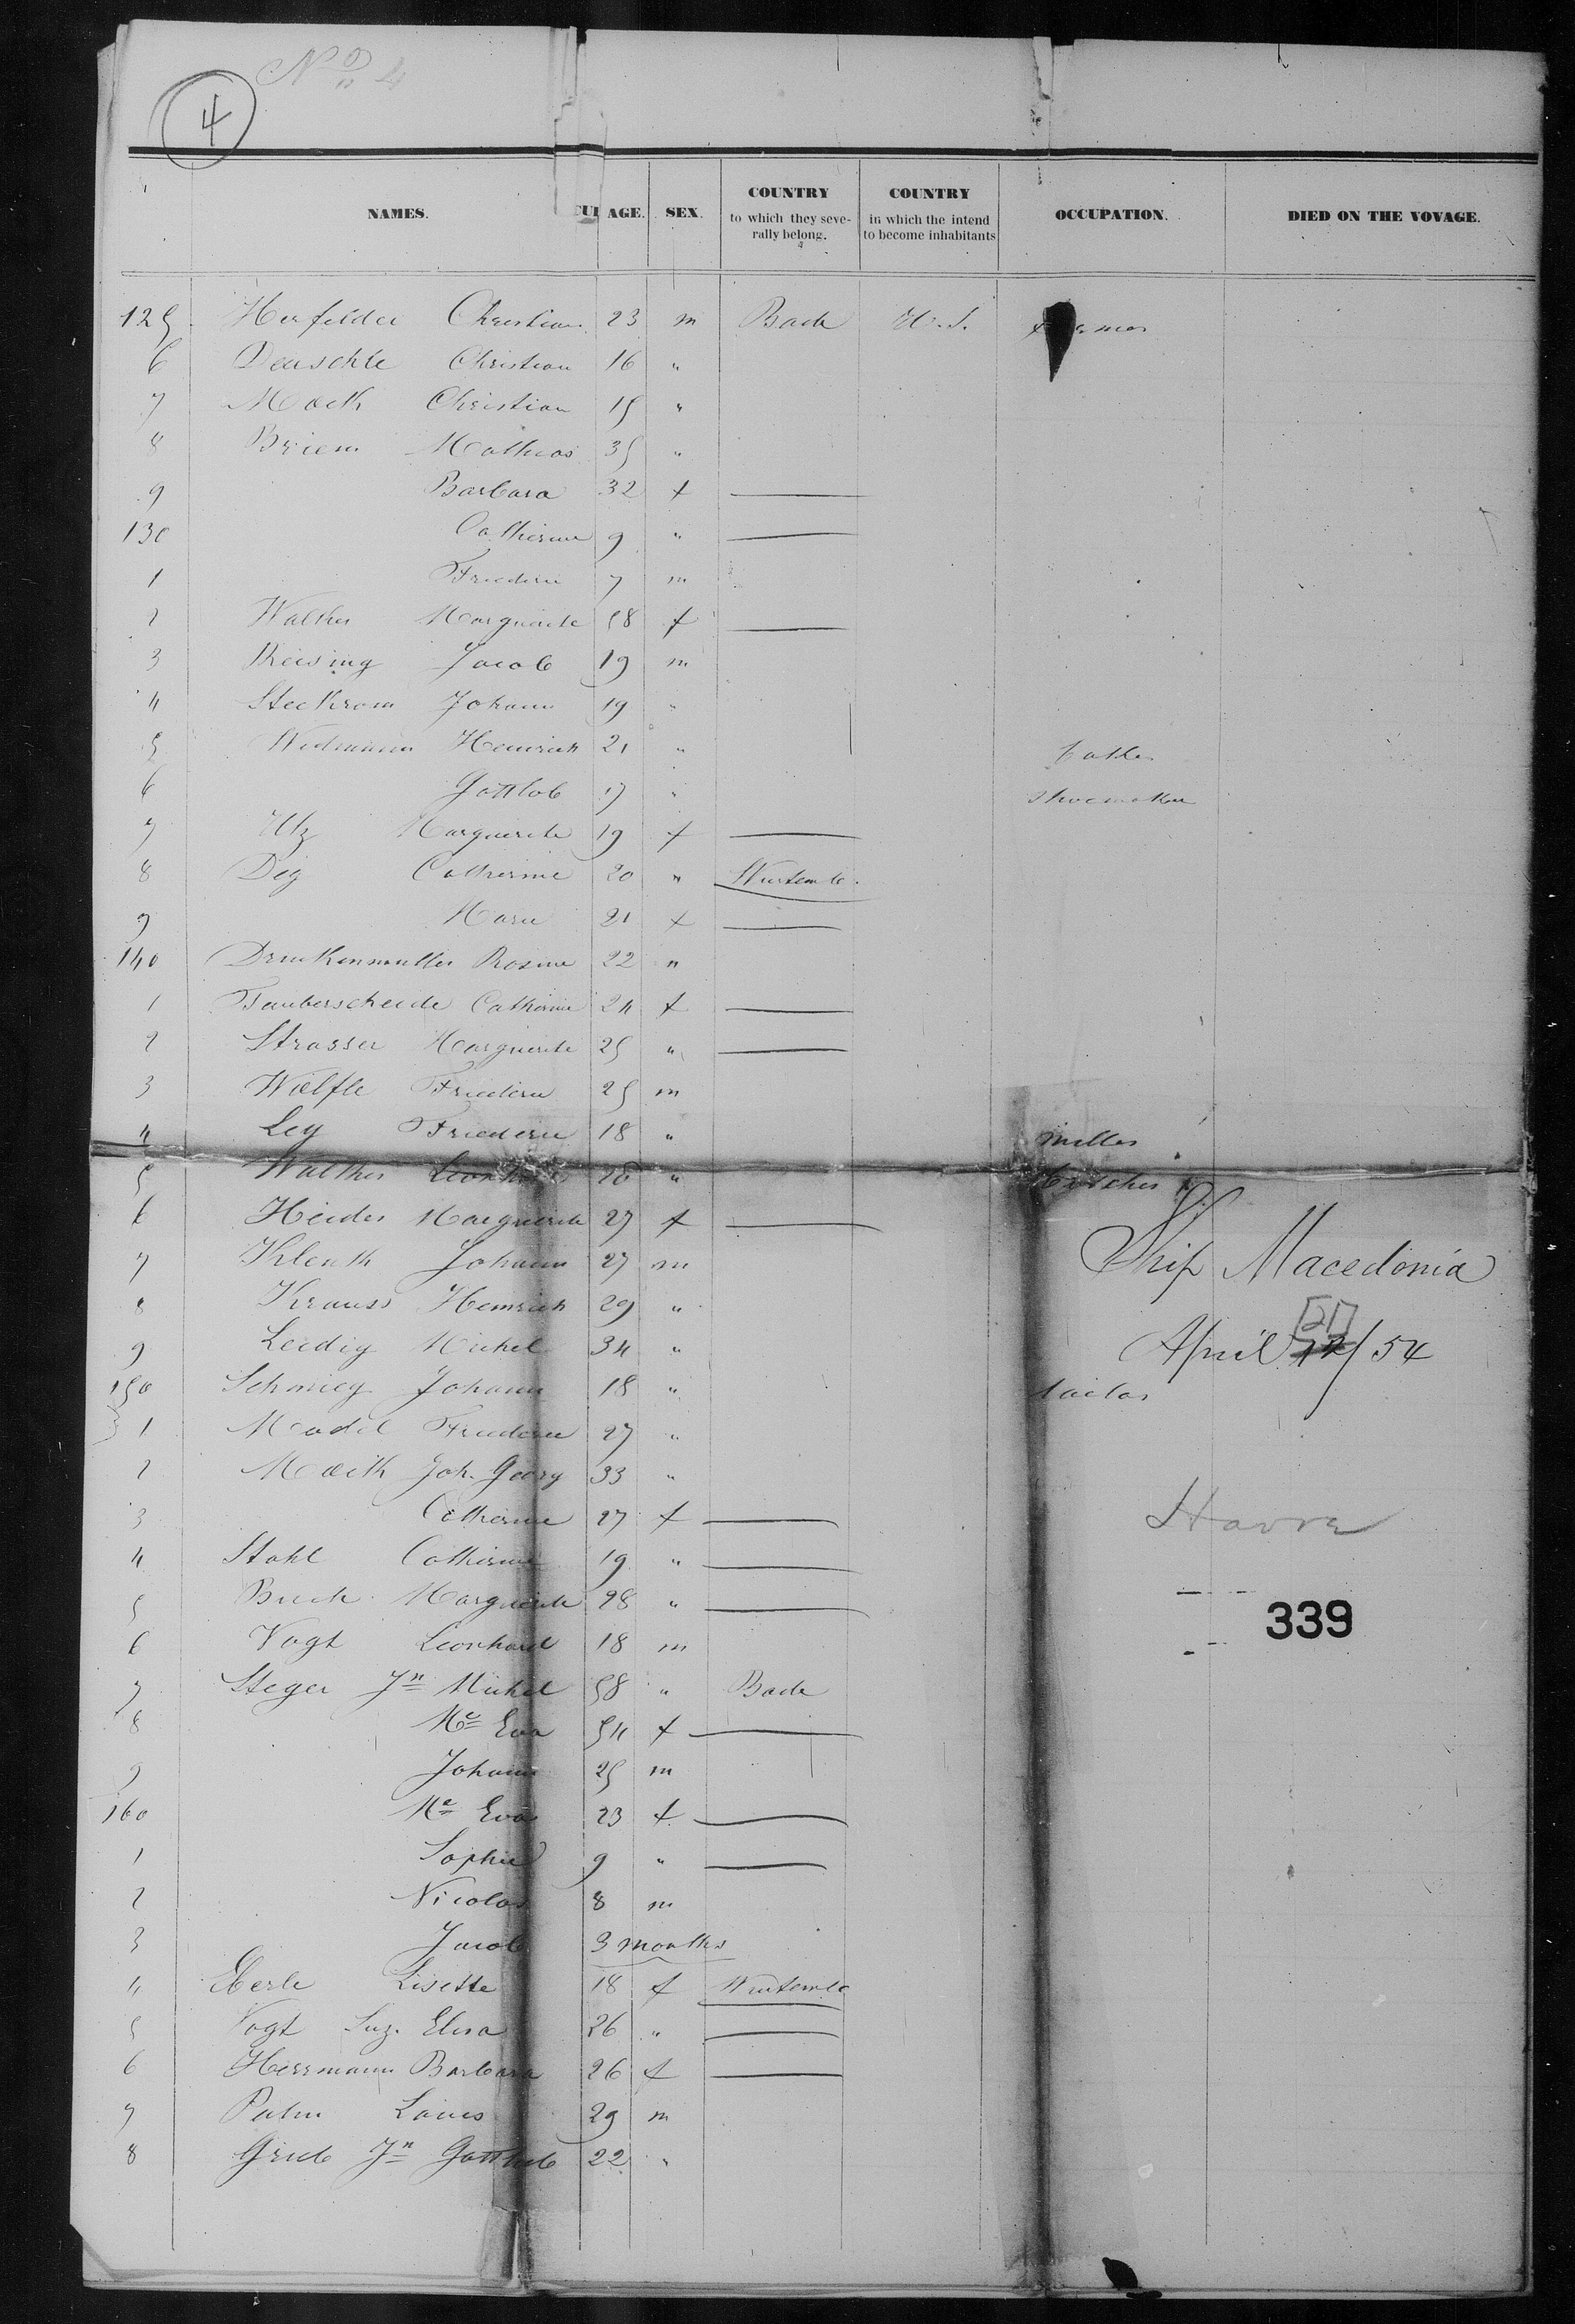 No 4
4
NAMES. AGE. SEX. COUNTRY to which they seve-rally belong. COUNTRY in which the intend to become inhabitants OCCUPATION. DIED ON THE VOVAGE.
125 Herfelder Christian 23 m Bade U.S.
6 Deuschle Christian 16 "
7 Maeth Christian 15 "
8 Briem Mathias 35 "
9 Barbara 32 f
130 Catherine 9 "
1 Friederic 7 m
2 Walther Marguerite 58 f
3 Reising Jacob 19 m
4 Johann 19 "
5 Widmann Heinrich 21 "
6 Gottlob 17 " Shoemaker
7 Utz Marguerite 19 f
8 Catherine 20 " Wurtemb.
9 Marie 21 f
140 Druckenmuller Rosine 22 "
1 Tauberscheide Catherine 24 f
2 Strasser Marguerite 25 "
3 Wölfle Friederic 25 m
4 Ley Friederic 18 " miller
5 Walther Leonhard 26 " Butcher
6 Heider Marguerite 27 f
7 Johann 27 m
8 Krauss Heinrich 29 "
9 Leidig Michel 34 "
150 Schmieg Johann 18 " tailor
1 Madel Friederic 27 "
2 Maeth Joh. Georg 33 "
3 Catherine 27 f
4 Stahl Catherine 19 "
5 Marguerite 28 "
6 Vogt Leonhard 18 m
7 Steger Jn Michel 58 " Bade
8 Me Eva 54 f
9 Johann 25 m
160 Me Eva 23 f
1 Sophie 9 "
2 Nicolas 8 m
3 Jacob 3 months
4 Eberle Lisette 18 f Wurtemb
5 Vogt Suz. Elisa 26 "
6 Herrmann Barbara 26 f
7 Palm Louis 29 m
8 Grieb Jn Gottlieb 22 "
Ship Macedonia
[21]
April 12/54
Havre
339